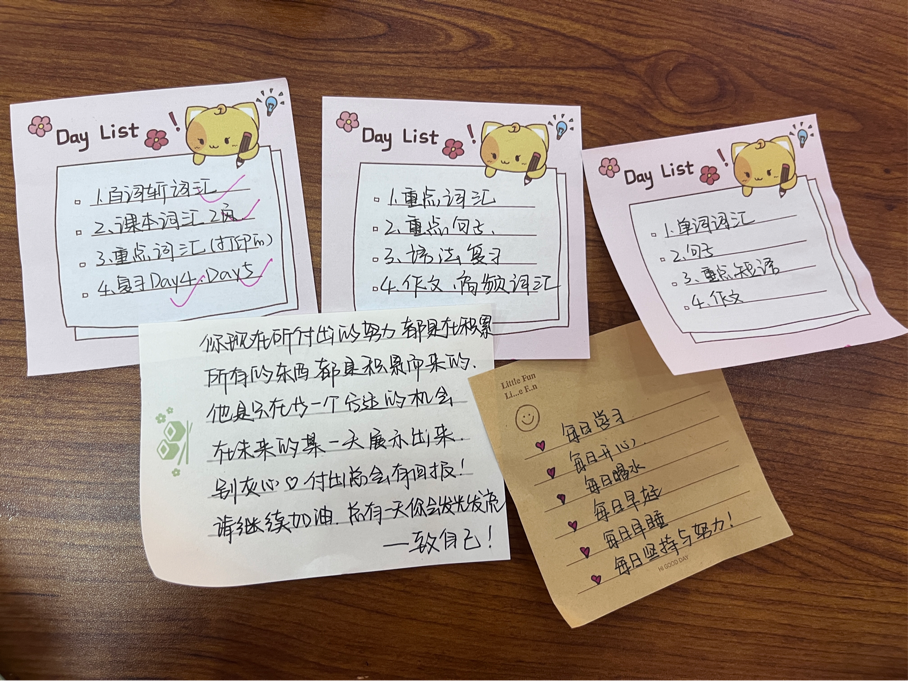 Day List
1.百词斩词汇
2.课本词汇2页
3.重点词汇(打印)
4.复习Day4、Day5
Day List
1.重点词汇
2.重点句子
3.语法复习
4.作文、高频词汇
Day List
1.单词词汇
2.句子
3.重点短语
4.作文
你现在所付出的努力都是在积累
所有的东西都是积累而来的.
他是只在找一个合适的机会
在未来的某一天展示出来.
别灰心♡付出总会有回报!
请继续加油.总有一天你会发光发亮
—致自己!
Little Fun
Li...e F.n
每日学习
每日开心
每日喝水
每日早起
每日早睡
每日坚持与努力!
Hi GOOD DAY